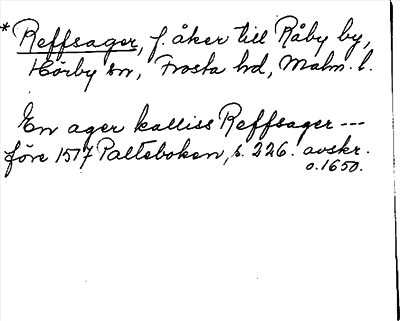 * Reffsager, f. åker till Råby by,
Hörby sn, Frosta hd, Malm. l.
En ager kalliss Reffsager ---
före 1517 Palteboken, s. 226. avskr.
o. 1650.